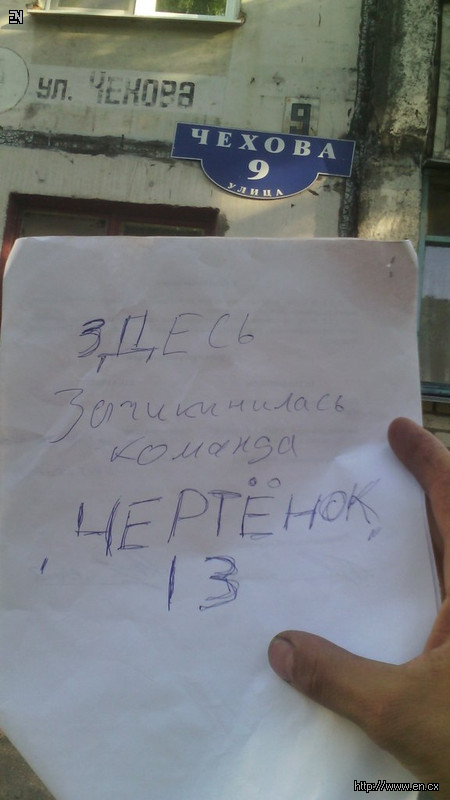 EN
ул. ЧЕХОВА
9
ЧЕХОВА
9
УЛИЦА
ЗДЕСЬ
Зачикинилась
команда
ЧЕРТЁНОК
13
http://www.en.cx